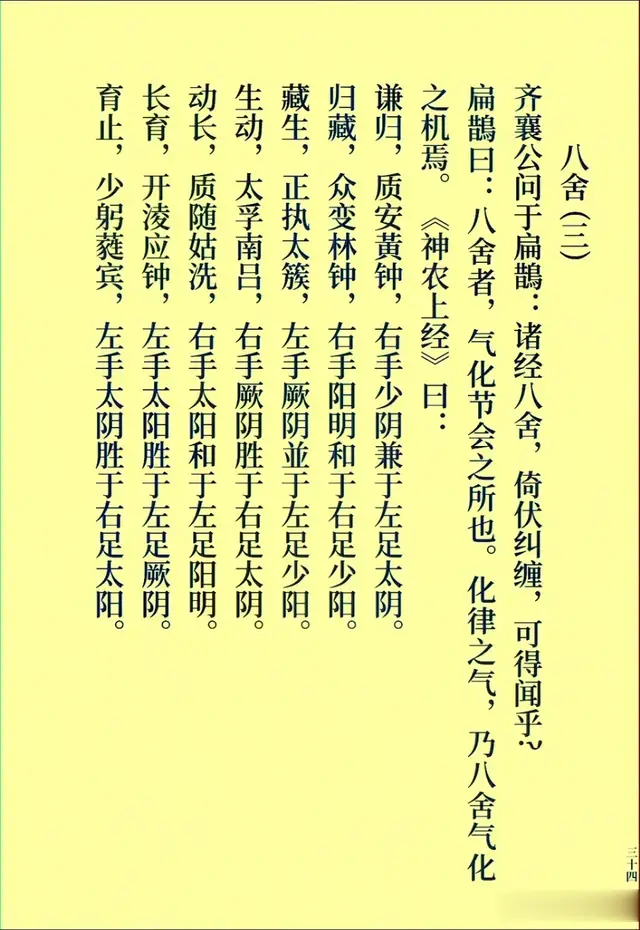 八舍(三)
齐襄公问于扁鵲：诸经八舍，倚伏纠缠，可得闻乎？
扁鵲曰：八舍者，气化节会之所也。化律之气，乃八舍气化
之机焉。《神农上经》曰：
谦归，质安黃钟，右手少阴兼于左足太阴。
归藏，众变林钟，右手阳明和于右足少阳。
藏生，正执太簇，左手厥阴並于左足少阳。
生动，太孚南吕，右手厥阴胜于右足太阴。
动长，质随姑洗，右手太阳和于左足阳明。
长育，开淩应钟，左手太阳胜于左足厥阴。
育止，少躬蕤宾，左手太阴胜于右足太阳。
三十四